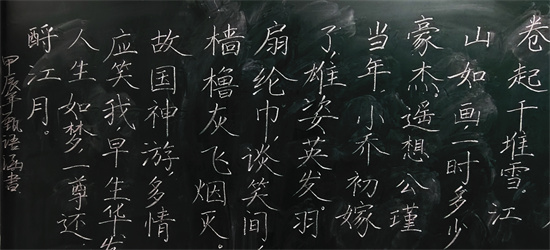 卷起千堆雪。江
山如画，一时多少
豪杰。遥想公瑾
当年，小乔初嫁
了，雄姿英发。羽
扇纶巾，谈笑间，
樯橹灰飞烟灭。
故国神游，多情
应笑我，早生华发
人生如梦，一尊还
酹江月。
甲辰年甄语涵书